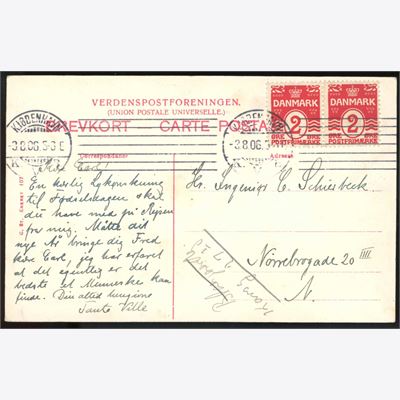 VERDENSPOSTFORENINGEN.
(UNION POSTALE UNIVERSELLE.)
BREVKORT CARTE POSTALE
KJØBENHAVN
3.8.06. 5-6 E
KJØBENHAVN
3.8.06.
DANMARK
2
ØRE ØRE
POSTFRIMÆRKE
DANMARK
2
ØRE ØRE
POSTFRIMÆRKE
Correspondance
Adresse
Kære Carl
En kærlig Lykønskning
til Fødselsdagen skal
du have med på Rejsen
fra mig. Måtte dit
nye År bringe dig Fred
kære Carl, jeg har erfaret
at det egentlig er det
bedste et Menneske kan
finde. Din altid hengivne
Tante Ville
Hr. Ingeniør C. Schiesbeck
Nørrebrogade 20 IIII
N.